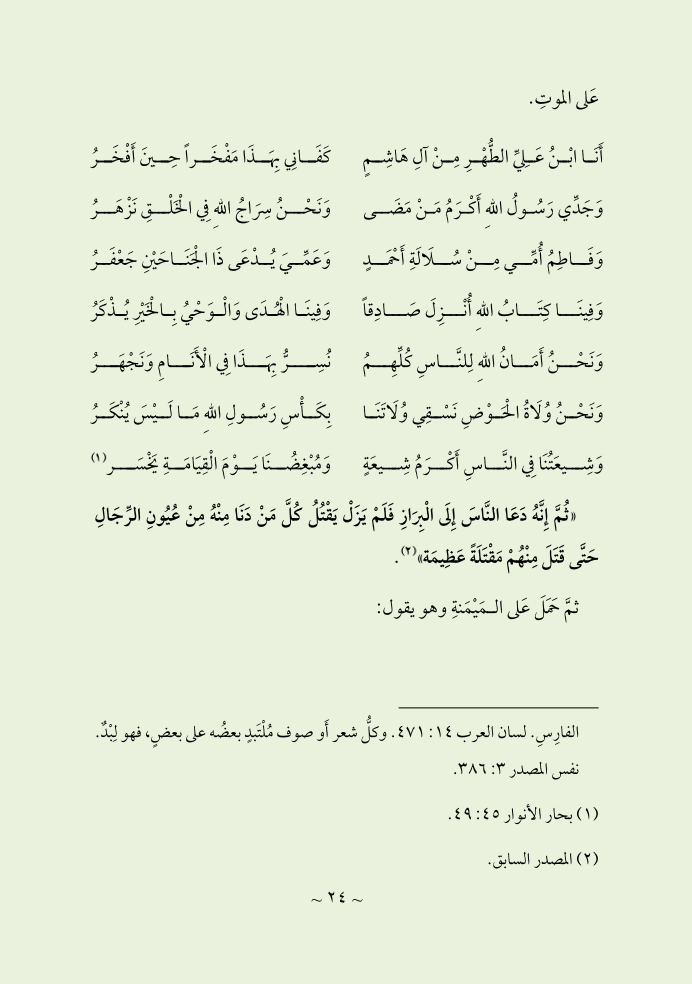 عَلى الموتِ.
أَنَـا ابْـنُ عَـلِيِّ الطُّهْـرِ مِـنْ آلِ هَاشِـمٍ كَفَـانِي بِهَـذَا مَفْخَـراً حِـينَ أَفْخَـرُ
وَجَدِّي رَسُـولُ اللهِ أَكْـرَمُ مَـنْ مَضَـى وَنَحْـنُ سِرَاجُ اللهِ فِي الْخَلْـقِ نَزْهَـرُ
وَفَـاطِمُ أُمِّـي مِـنْ سُـلَالَةِ أَحْمَـدٍ وَعَمِّـيَ يُـدْعَى ذَا الْجَنَـاحَيْنِ جَعْفَـرُ
وَفِينَـا كِتَـابُ اللهِ أُنْـزِلَ صَـادِقاً وَفِينَـا الْهُـدَى وَالْـوَحْيُ بِـالْخَيْرِ يُـذْكَرُ
وَنَحْـنُ أَمَـانُ اللهِ لِلنَّـاسِ كُلِّهِـمُ نُسِـرُّ بِهَـذَا فِي الْأَنَـامِ وَنَجْهَـرُ
وَنَحْـنُ وُلَاةُ الْحَـوْضِ نَسْـقِي وُلَاتَنَـا بِكَـأْسِ رَسُـولِ اللهِ مَـا لَـيْسَ يُنْكَـرُ
وَشِـيعَتُنَا فِي النَّـاسِ أَكْـرَمُ شِـيعَةٍ وَمُبْغِضُـنَا يَـوْمَ الْقِيَامَـةِ يَخْسَـرُ(١)
«ثُمَّ إِنَّهُ دَعَا النَّاسَ إِلَى الْبِرَازِ فَلَمْ يَزَلْ يَقْتُلُ كُلَّ مَنْ دَنَا مِنْهُ مِنْ عُيُونِ الرِّجَالِ
حَتَّى قَتَلَ مِنْهُمْ مَقْتَلَةً عَظِيمَة»(٢).
ثمَّ حَمَلَ عَلى الـمَيْمَنةِ وهو يقول:
الفارِسِ. لسان العرب ١٤: ٤٧١. وكلُّ شعر أَو صوف مُلْتَبدٍ بعضُه على بعضٍ، فهو لِبْدٌ.
نفس المصدر ٣: ٣٨٦.
(١) بحار الأنوار ٤٥: ٤٩.
(٢) المصدر السابق.
~ ٢٤ ~